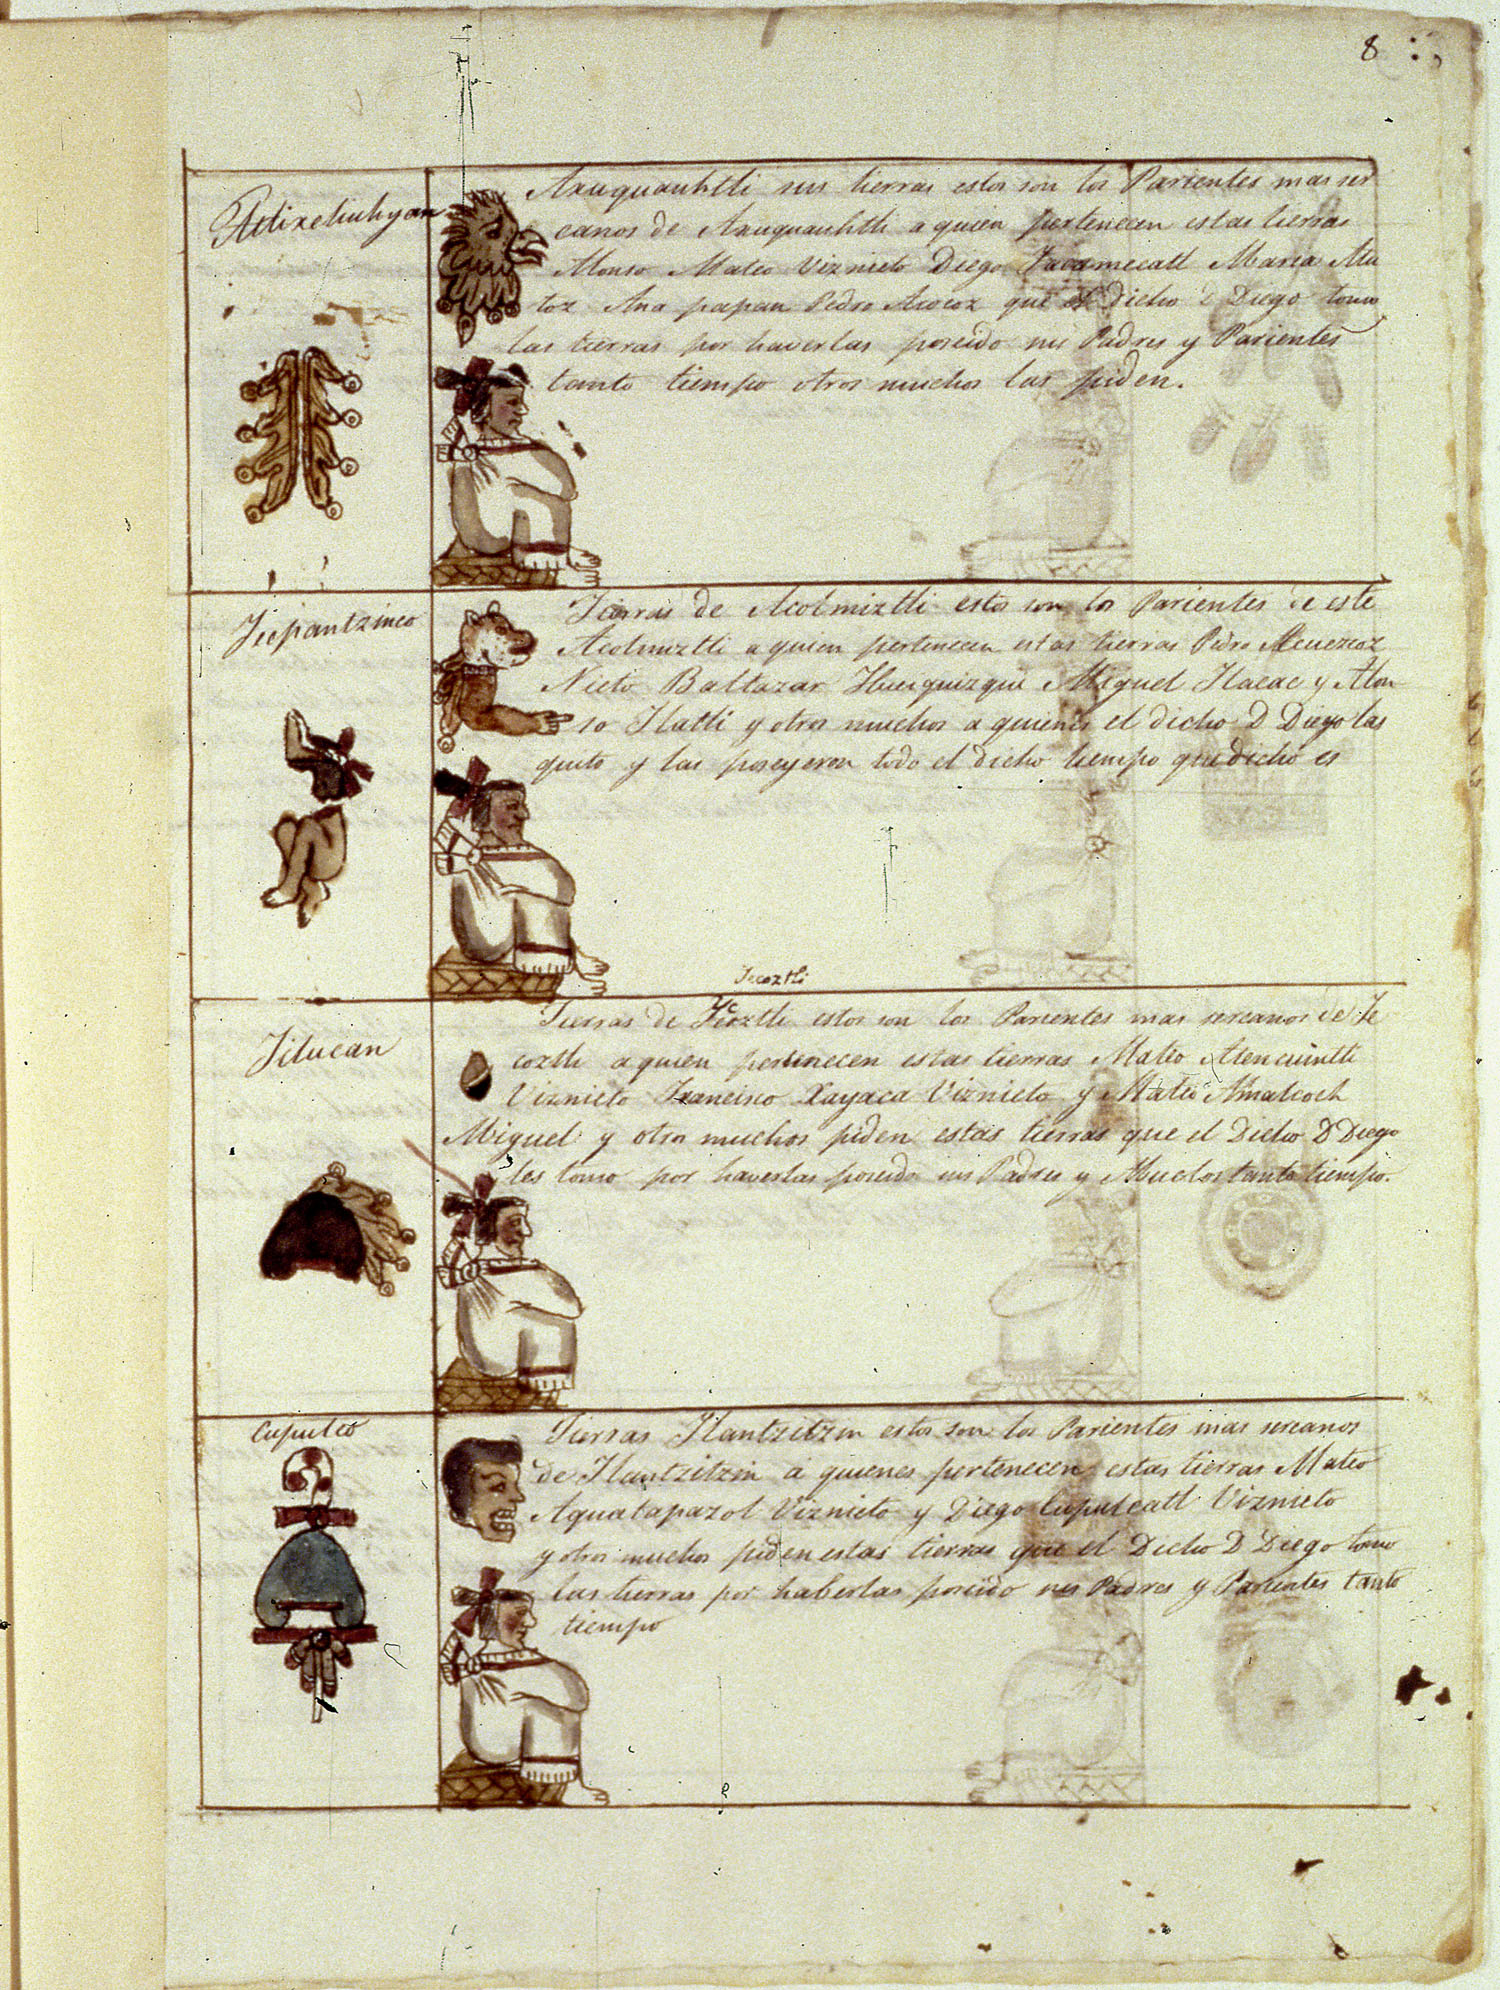 8
Atlixeliuhyan
Axuquauhtli sus tierras estos son los Parientes mas ser
canos de Axuquauhtli a quien pertenecen estas tierras
Alonso Mateo Viznieto Diego Tacamecatl Maria Mu
toz Ana papan Pedro Acocoz que el dicho D Diego tomo
las tierras por haverlas poseido sus Padres y Parientes
tanto tiempo otros muchos las piden.
Tecpantzinco
Tierras de Acolmiztli estos son los Parientes de este
Acolmiztli a quien pertenecen estas tierras Pedro Acuezcoz
Nieto Baltazar Huequizqui Miguel Tlacac y Alon
so Tlatli y otros muchos a quienes el dicho D Diego las
quito y las poseyeron todo el dicho tiempo que dicho es
Tecoztli
Titucan
Tierras de Tecoztli estos son los Parientes mas sercanos de Te
coztli a quien pertenecen estas tierras Mateo Atencuintli
Viznieto Francisco Xayaca Viznieto y Mateo Amalcoch
Miguel y otros muchos piden estas tierras que el Dicho D Diego
les tomo por haverlas poseido sus Padres y Abuelos tanto tiempo.
Cupulco
Tierras Tlantzitzin estos son los Parientes mas sercanos
de Tlantzitzin a quienes pertenecen estas tierras Mateo
Aquatapazol Viznieto y Diego Cupulcatl Viznieto
y otros muchos piden estas tierras que el Dicho D Diego tomo
las tierras por haberlas poseido sus Padres y Parientes tanto
tiempo